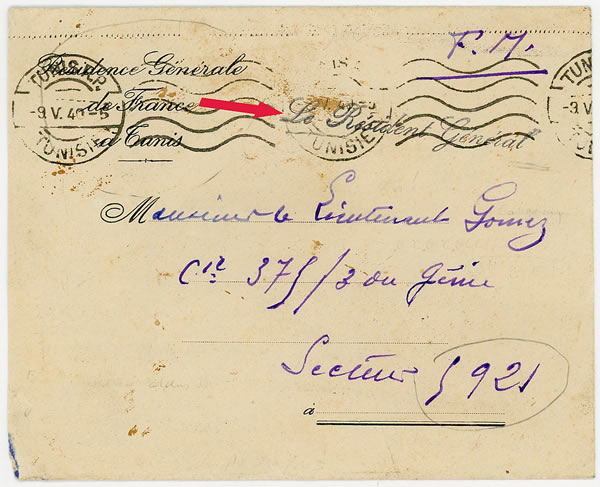 Résidence Générale
de France
à Tunis
TUNIS RP
-9.V.40-5
TUNISIE
F. M.
"Le Résident Général"
TUNISIE
TUNIS
-9.V
TUNI
Monsieur le Lieutenant Gomez
Cie 375/3 du Génie
Secteur 5921
à